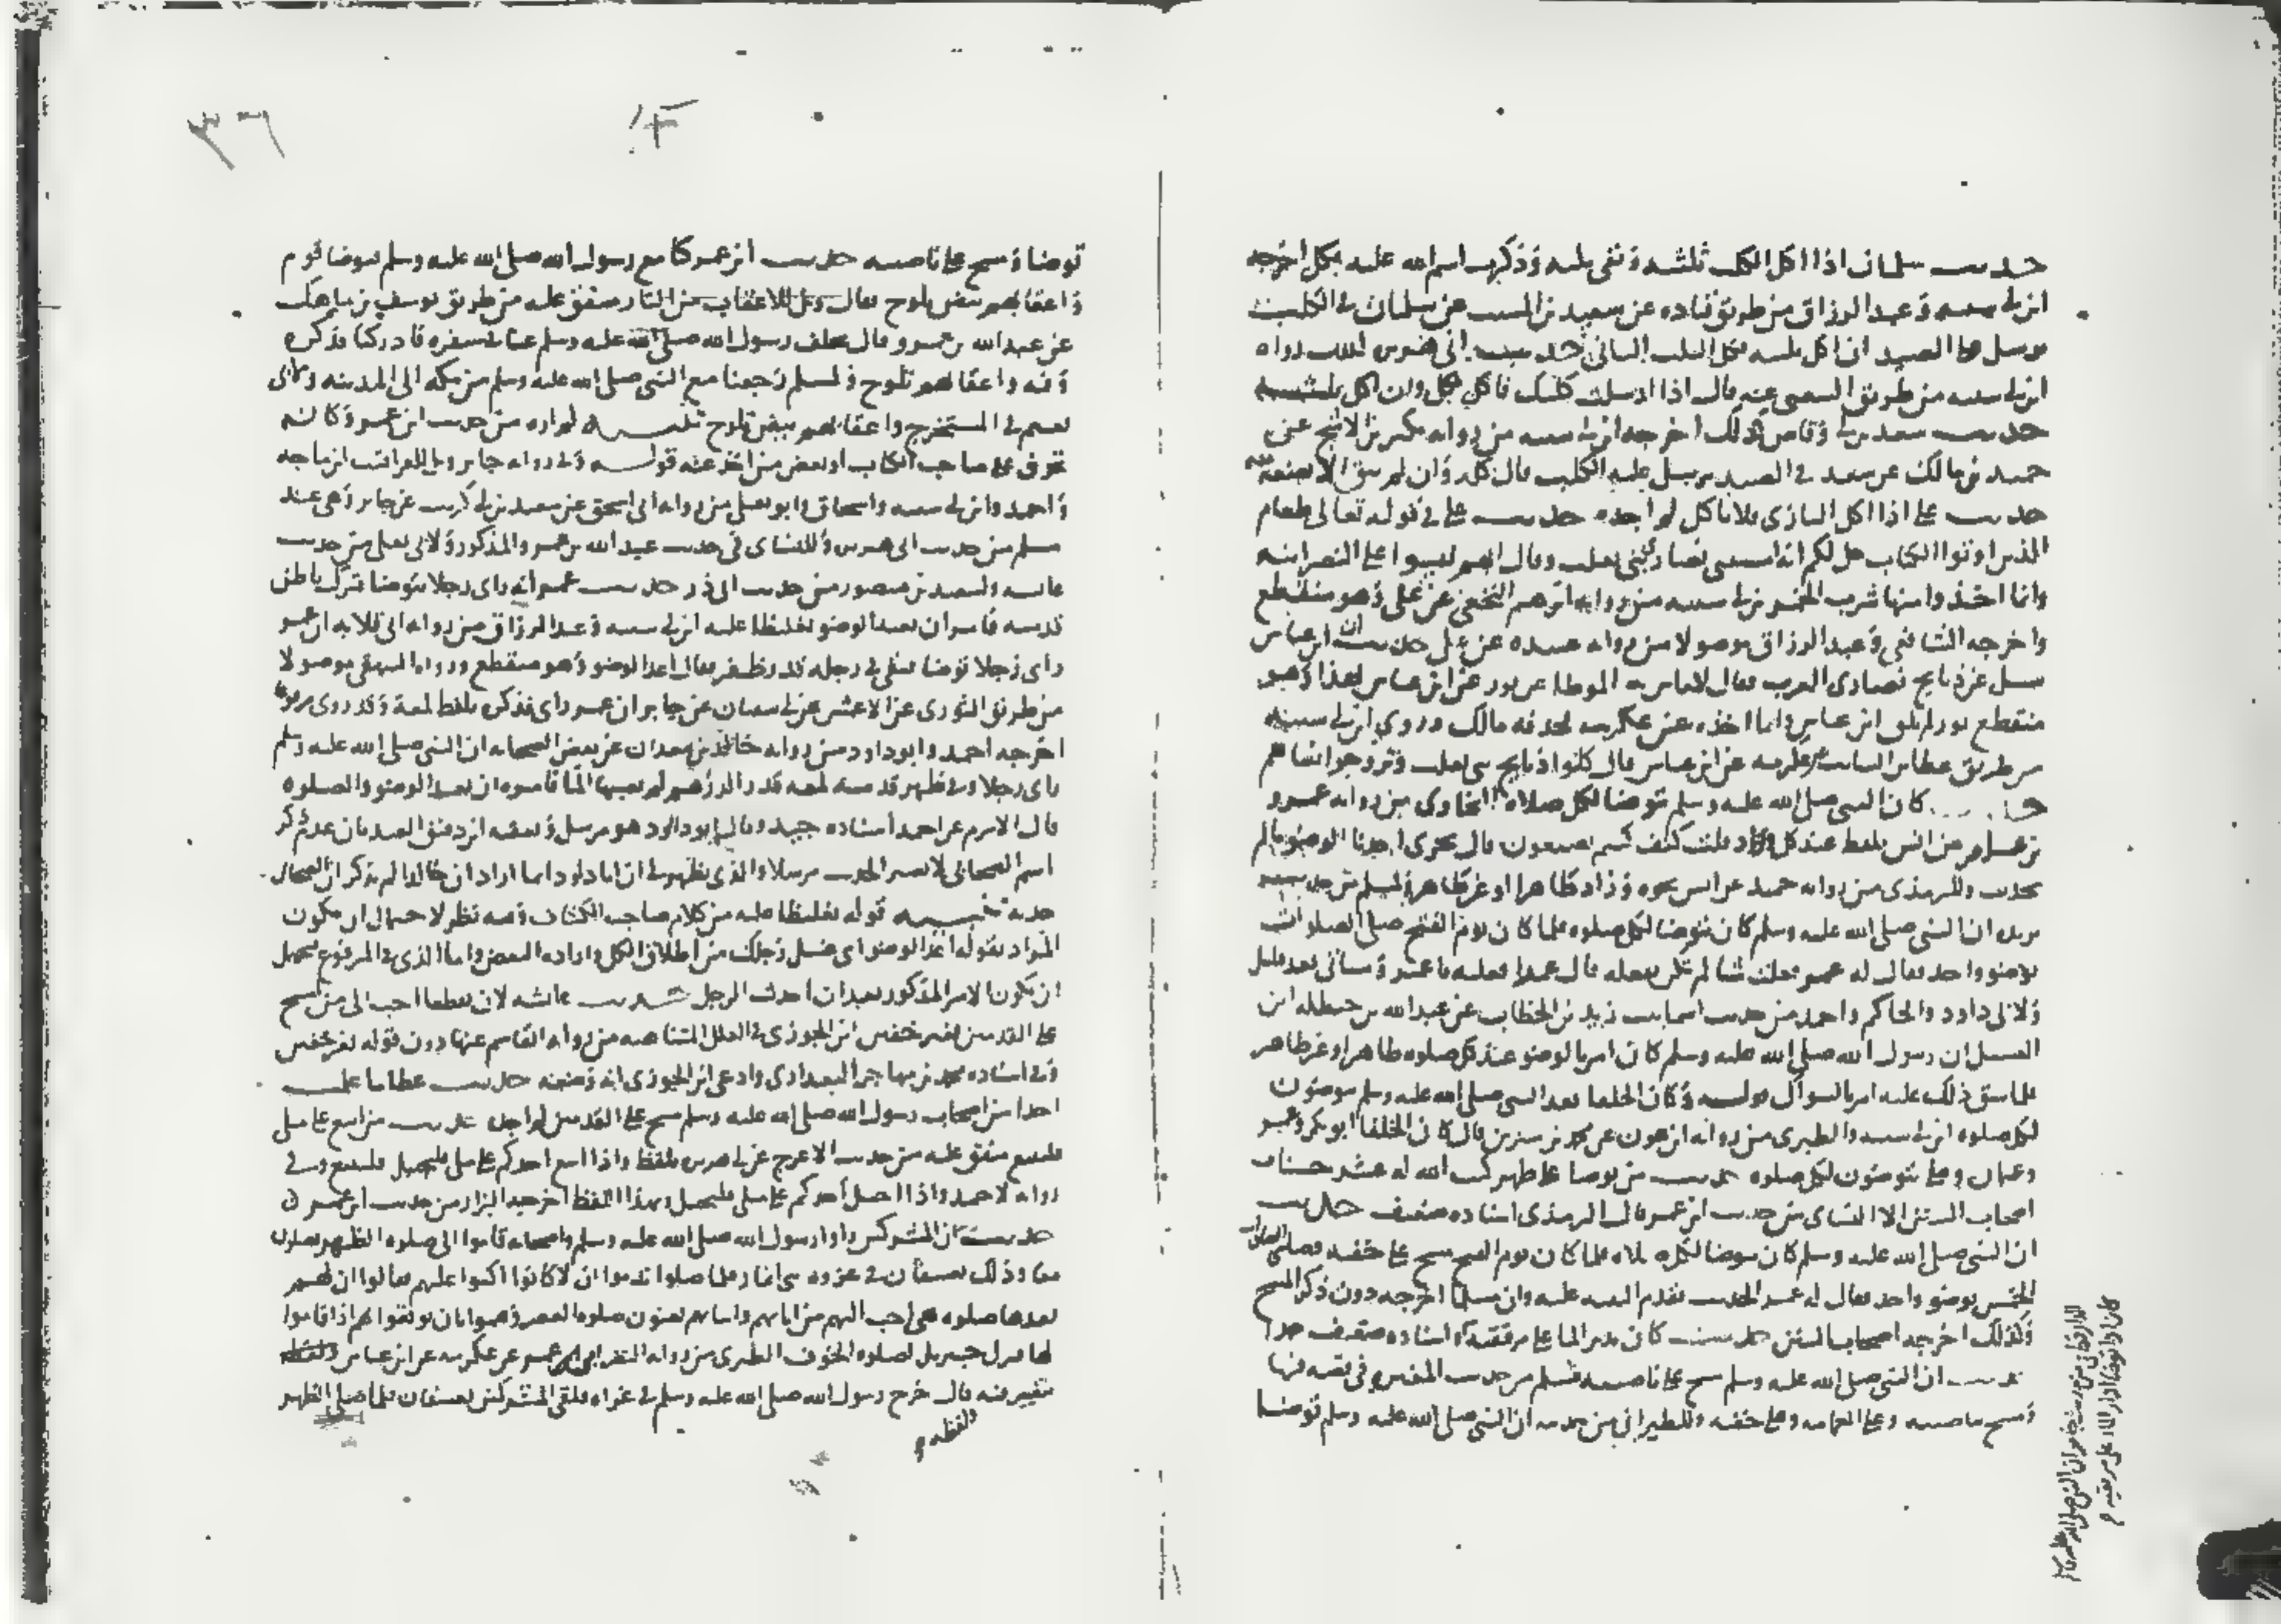 حديث سلمان اذا اكل الكلب ثلثيه وبقي ثلثه وذكرت اسم الله عليه فكل اخرجه
ابن ابي شيبه وعبد الرزاق من طريق قتاده عن سعيد بن المسيب عن سلمان في الكلب
يرسل على الصيد ان اكل ثلثيه فكل الثلث الباقي حديث ابي هريره
ابن ابي شيبه من طريق الشعبي عنه قال اذا ارسلت كلبك فاكل فكل وان اكل ثلثيه
حديث سعد بن ابي وقاص كذلك اخرجه ابن ابي شيبه من روايه بكير بن الاشج عن
حميد بن مالك عن سعد في الصيد يرسل عليه الكلب قال كله وان لم يبق الا بضعة
حديث علي اذا اكل البازي فلا تاكل لم اجده حديث علي في قوله تعالى طعام
الذين اوتوا الكتاب حل لكم انه استثنى نصارى بني تغلب وقال انهم ليسوا على النصرانيه
وانما اخذوا منها شرب الخمر ابن ابي شيبه من روايه ابرهيم النخعي عن علي وهو منقطع
واخرجه الشافعي وعبد الرزاق موصولا من روايه عبيده عن علي حديث ابن عباس
سئل عن ذبايح نصارى العرب فقال لا باس به الموطا عن ثور عن ابن عباس بهذا وهو
منقطع ثور لم يلق ابن عباس وانما اخذه عن عكرمه فحذفه مالك وروى ابن ابي شيبه
من طريق عطا بن السايب عن عكرمه عن ابن عباس قال كلوا ذبايح بني تغلب وتزوجوا نساهم
كان النبي صلى الله عليه وسلم يتوضا لكل صلاه البخاري من روايه عمرو
بن عامر عن انس بلفظ عند كل صلاة قلت كيف كنتم تصنعون قال يجزي احدنا الوضو ما لم
يحدث وللترمذي من روايه حميد عن انس نحوه وزاد طاهرا او غير طاهر ولمسلم من حديث
بريده ان النبي صلى الله عليه وسلم كان يتوضا لكل صلوه فلما كان يوم الفتح صلى الصلوات
بوضو واحد فقال له عمر فعلت شيا لم تكن تفعله قال عمدا فعلته يا عمر وسياتي بعد قليل
ولابي داود والحاكم واحمد من حديث اسما بنت زيد بن الخطاب عن عبد الله بن حنظله ابن
الغسيل ان رسول الله صلى الله عليه وسلم كان امر بالوضو عند كل صلوه طاهرا او غير طاهر
فلما شق ذلك عليه امر بالسواك قوله وكان الخلفا بعد النبي صلى الله عليه وسلم يتوضون
لكل صلوه ابن ابي شيبه والطبري من روايه ابن عون عن محمد بن سيرين قال كان الخلفا ابو بكر وعمر
وعثمان وعلي يتوضون لكل صلوه حديث من توضا على طهر كتب الله له عشر حسنات
اصحاب السنن الا النساي من حديث ابن عمر قال الترمذي اسناده ضعيف حديث
ان النبي صلى الله عليه وسلم كان يتوضا لكل صلاه فلما كان يوم الفتح مسح على خفيه وصلى الصلوات
الخمس بوضو واحد فقال له عمر الحديث تقدم التنبيه عليه وان مسلما اخرجه دون ذكر المسح
وكذلك اخرجه اصحاب السنن حديث كان يدير الما على مرفقيه اسناده ضعيف
حديث ان النبي صلى الله عليه وسلم مسح على ناصيته مسلم من حديث المغيره في قصه فيها
ومسح بناصيته وعلى العمامه وعلى خفيه وللطبراني من حديثه ان النبي صلى الله عليه وسلم توضا
الدارقطني من حديث جابر ان النبي صلى الله عليه وسلم
كان اذا توضا ادار الماء على مرفقيه
٣٦
توضا ومسح على ناصيته حديث ابن عمر كنا مع رسول الله صلى الله عليه وسلم فتوضا قوم
واعقابهم بيض تلوح فقال ويل للاعقاب من النار متفق عليه من طريق يوسف بن ماهك
عن عبد الله بن عمرو قال تخلف رسول الله صلى الله عليه وسلم عنا في سفره فادركنا فذكره
وفيه واعقابهم تلوح ولمسلم رجعنا مع النبي صلى الله عليه وسلم من مكه الى المدينه
نعيم في المستخرج واعقابهم بيض تلوح تنبيه لم اره من حديث ابن عمر وكانه
تحرف على صاحب الكتاب او بعض من اخذ عنه قوله وفي روايه جابر ويل للعراقيب ابن ماجه
واحمد وابن ابي شيبه واسحاق وابو يعلى من روايه ابي اسحق عن سعيد بن ابي كريب عن جابر وهي عند
مسلم من حديث ابي هريره وللنساي في حديث عبد الله بن عمرو المذكور ولابي يعلى من حديث
عايشه ولسعيد بن منصور من حديث ابي ذر حديث عمر انه راى رجلا يتوضا فترك باطن
قدميه فامره ان يعيد الوضو تغليظا عليه ابن ابي شيبه وعبد الرزاق من روايه ابي قلابه ان عمر
راى رجلا توضا فبقي في رجله قدر ظفر فقال اعد الوضو وهو منقطع ورواه البيهقي موصولا
من طريق الثوري عن الاعمش عن ابي سفيان عن جابر ان عمر راى فذكره بلفظ لمعة وقد روي مرفوعا
اخرجه احمد وابو داود من روايه خالد بن معدان عن بعض الصحابه ان النبي صلى الله عليه وسلم
راى رجلا وفي ظهر قدمه لمعه قدر الدرهم لم يصبها الما فامره ان يعيد الوضو والصلوه
قال الاثرم عن احمد اسناده جيد وقال ابو داود هو مرسل وتعقبه ابن دقيق العيد بان عدم ذكر
اسم الصحابي لا يصير الحديث مرسلا والذي يظهر لي ان ابا داود انما اراد ان خالدا لم يذكر ان الصحابي
حدثه تنبيه قوله تغليظا عليه من كلام صاحب الكشاف وفيه نظر لاحتمال ان يكون
المراد بقوله اعد الوضو اي غسل رجلك من اطلاق الكل واراده البعض واما الذي في المرفوع فيحتمل
ان يكون الامر المذكور بعد ان احدث الرجل حديث عايشه لان تقطعا احب الي من ان امسح
على القدمين بغير خفين ابن الجوزي في العلل المتناهيه من روايه القاسم عنها دون قوله بغير خفين
وفي اسناده محمد بن مهاجر البغدادي وادعى ابن الجوزي انه وضعه حديث عطا ما علمت
احدا من اصحاب رسول الله صلى الله عليه وسلم مسح على القدمين لم اجده حديث من اتبع على ملي
فليتبع متفق عليه من حديث الاعرج عن ابي هريره بلفظ واذا اتبع احدكم على ملي فليتبع وفي
روايه لاحمد واذا احيل احدكم على ملي فليحتل وبهذا اللفظ اخرجه البزار من حديث ابن عمر
حديث ان المشركين راوا رسول الله صلى الله عليه وسلم واصحابه قاموا الى صلوه الظهر يصلون
معا وذلك بعسفان في غزوه بني انمار فلما صلوا ندموا ان لا كانوا اكبوا عليهم فقالوا ان لهم
بعدها صلوه هي احب اليهم من ابايهم وابنايهم يعنون صلوه العصر وهموا بان يوقعوا بهم اذا قاموا
لها فنزل جبريل بصلوه الخوف الطبري من روايه النضر ابي عمر عن عكرمه عن ابن عباس
بتغيير فيه قال خرج رسول الله صلى الله عليه وسلم في غزاه فلقي المشركين بعسفان فلما صلى الظهر
ولفظه